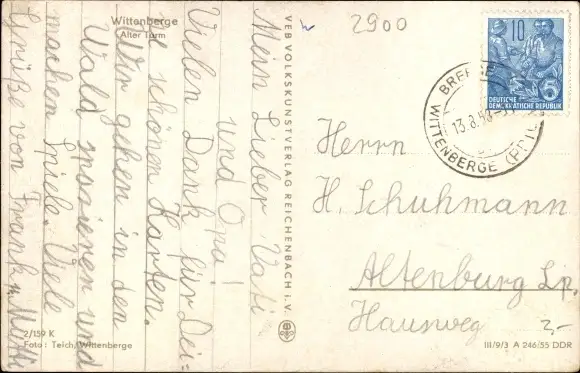 Wittenberge
Alter Turm
Mein Lieber Vati
und Opa!
Vielen Dank für Dei-
ne schönen Karten.
Wir gehen in den
Wald spazieren und
machen Spiele. Viele
Grüße von Frank u. Mutti
2/159 K
Foto: Teich/Wittenberge
VEB VOLKSKUNSTVERLAG REICHENBACH i. V.
2900
10
DEUTSCHE
DEMOKRATISCHE REPUBLIK
WITTENBERGE
13.8.
Herrn
H. Schuhmann
Altenburg Lp.
Hausweg
2,-
III/9/3 A 246/55 DDR